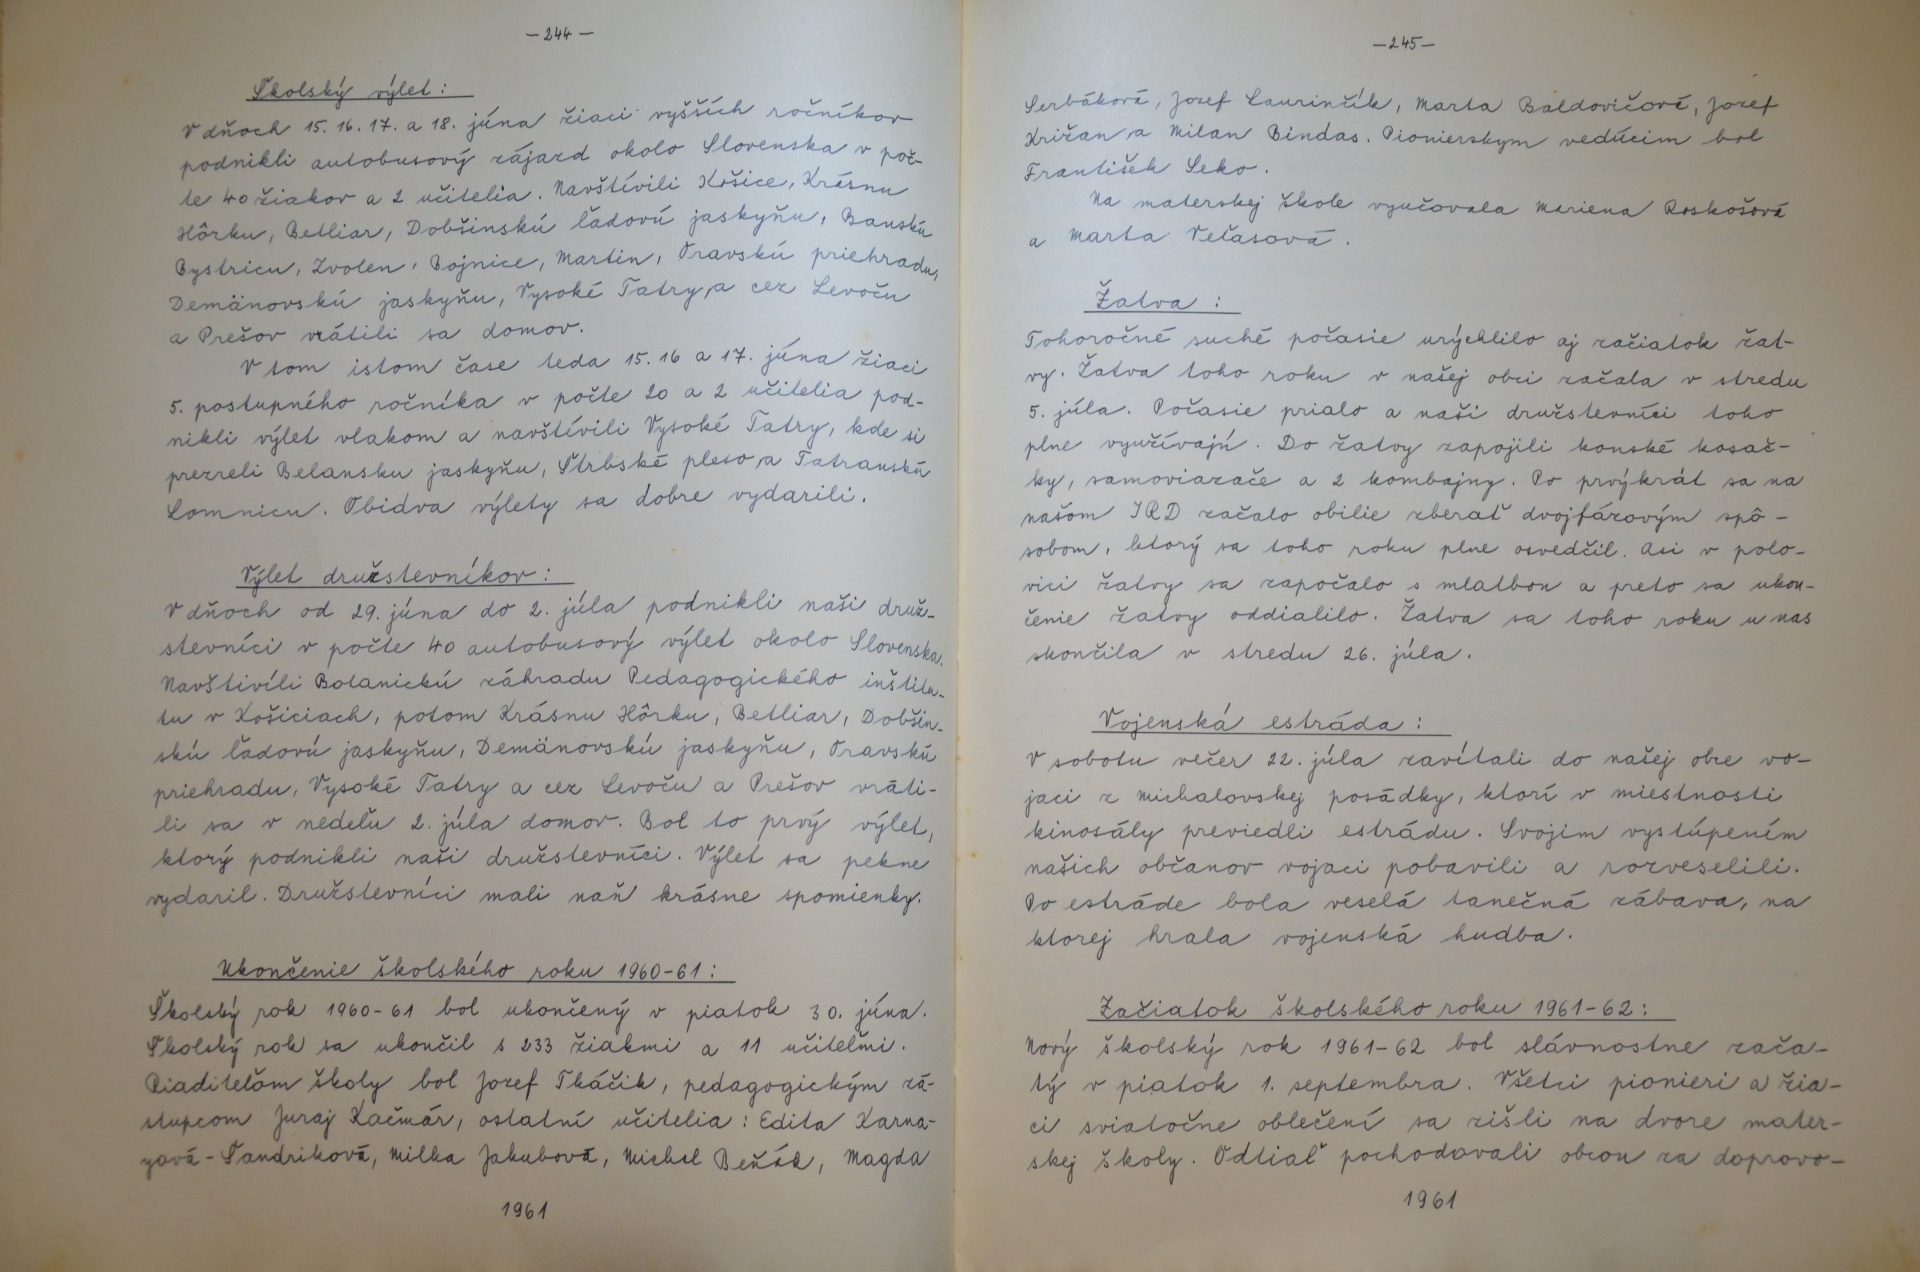 —244—
Školský výlet:
V dňoch 15. 16. 17. a 18. júna žiaci vyšších ročníkov
podnikli autobusový zájazd okolo Slovenska v poč-
te 40 žiakov a 2 učitelia. Navštívili Košice, Krásnu
Hôrku, Betliar, Dobšinskú ľadovú jaskyňu, Banskú
Bystricu, Zvolen, Bojnice, Martin, Oravskú priehradu,
Demänovskú jaskyňu, Vysoké Tatry, a cez Levoču
a Prešov vrátili sa domov.
V tom istom čase teda 15. 16 a 17. júna žiaci
5. postupného ročníka v počte 20 a 2 učitelia pod-
nikli výlet vlakom a navštívili Vysoké Tatry, kde si
prezreli Belansku jaskyňu, Štrbské pleso, a Tatranskú
Lomnicu. Obidva výlety sa dobre vydarili.
Výlet družstevníkov:
V dňoch od 29. júna do 2. júla podnikli naši druž-
stevníci v počte 40 autobusový výlet okolo Slovenska.
Navštivíli Botanickú záhradu Pedagogického inštitu-
tu v Košiciach, potom Krásnu Hôrku, Betliar, Dobšin-
skú ľadovú jaskyňu, Demänovskú jaskyňu, Oravskú
priehradu, Vysoké Tatry a cez Levoču a Prešov vráti-
li sa v nedeľu 2. júla domov. Bol to prvý výlet,
ktorý podnikli naši družstevníci. Výlet sa pekne
vydaril. Družstevníci mali naň krásne spomienky.
Ukončenie školského roku 1960-61:
Školský rok 1960-61 bol ukončený v piatok 30. júna.
Školský rok sa ukončil s 233 žiakmi a 11 učiteľmi.
Riaditeľom školy bol Jozef Tkáčik, pedagogickým zá-
stupcom Juraj Kačmár, ostatní učitelia: Edita Karna-
yová-Šandriková, Milka Jakubová, Michal Beňák, Magda
1961
—245—
Serbáková, Jozef Laurinčík, Marta Baldovičová, Jozef
Križan a Milan Bindas. Pionierskym vedúcim bol
František Seko.
Na materskej škole vyučovala Mariena Roskošová
a Marta Veľasová.
Žatva:
Tohoročné suché počasie urýchlilo aj začiatok žat-
vy. Žatva toho roku v našej obci začala v stredu
5. júla. Počasie prialo a naši družstevníci toho
plne využívajú. Do žatvy zapojili konské kosač-
ky, samoviazače a 2 kombajny. Po prvýkrát sa na
našom JRD začalo obilie zberať dvojfázovým spô-
sobom, ktorý sa toho roku plne osvedčil. Asi v polo-
vici žatvy sa započalo s mlatbou a preto sa ukon-
čenie žatvy oddialilo. Žatva sa toho roku u nas
skončila v stredu 26. júla.
Vojenská estráda:
V sobotu večer 22. júla zavítali do našej obce vo-
jaci z Michalovskej posádky, ktorí v miestnosti
kinosály previedli estrádu. Svojim vystúpením
našich občanov vojaci pobavili a rozveselili.
Po estráde bola veselá tanečná zábava, na
ktorej hrala vojenská hudba.
Začiatok školského roku 1961-62:
Nový školský rok 1961-62 bol slávnostne zača-
tý v piatok 1. septembra. Všetci pionieri a žia-
ci sviatočne oblečení sa zišli na dvore mater-
skej školy. Odtiaľ pochodovali obcou za doprovo-
1961